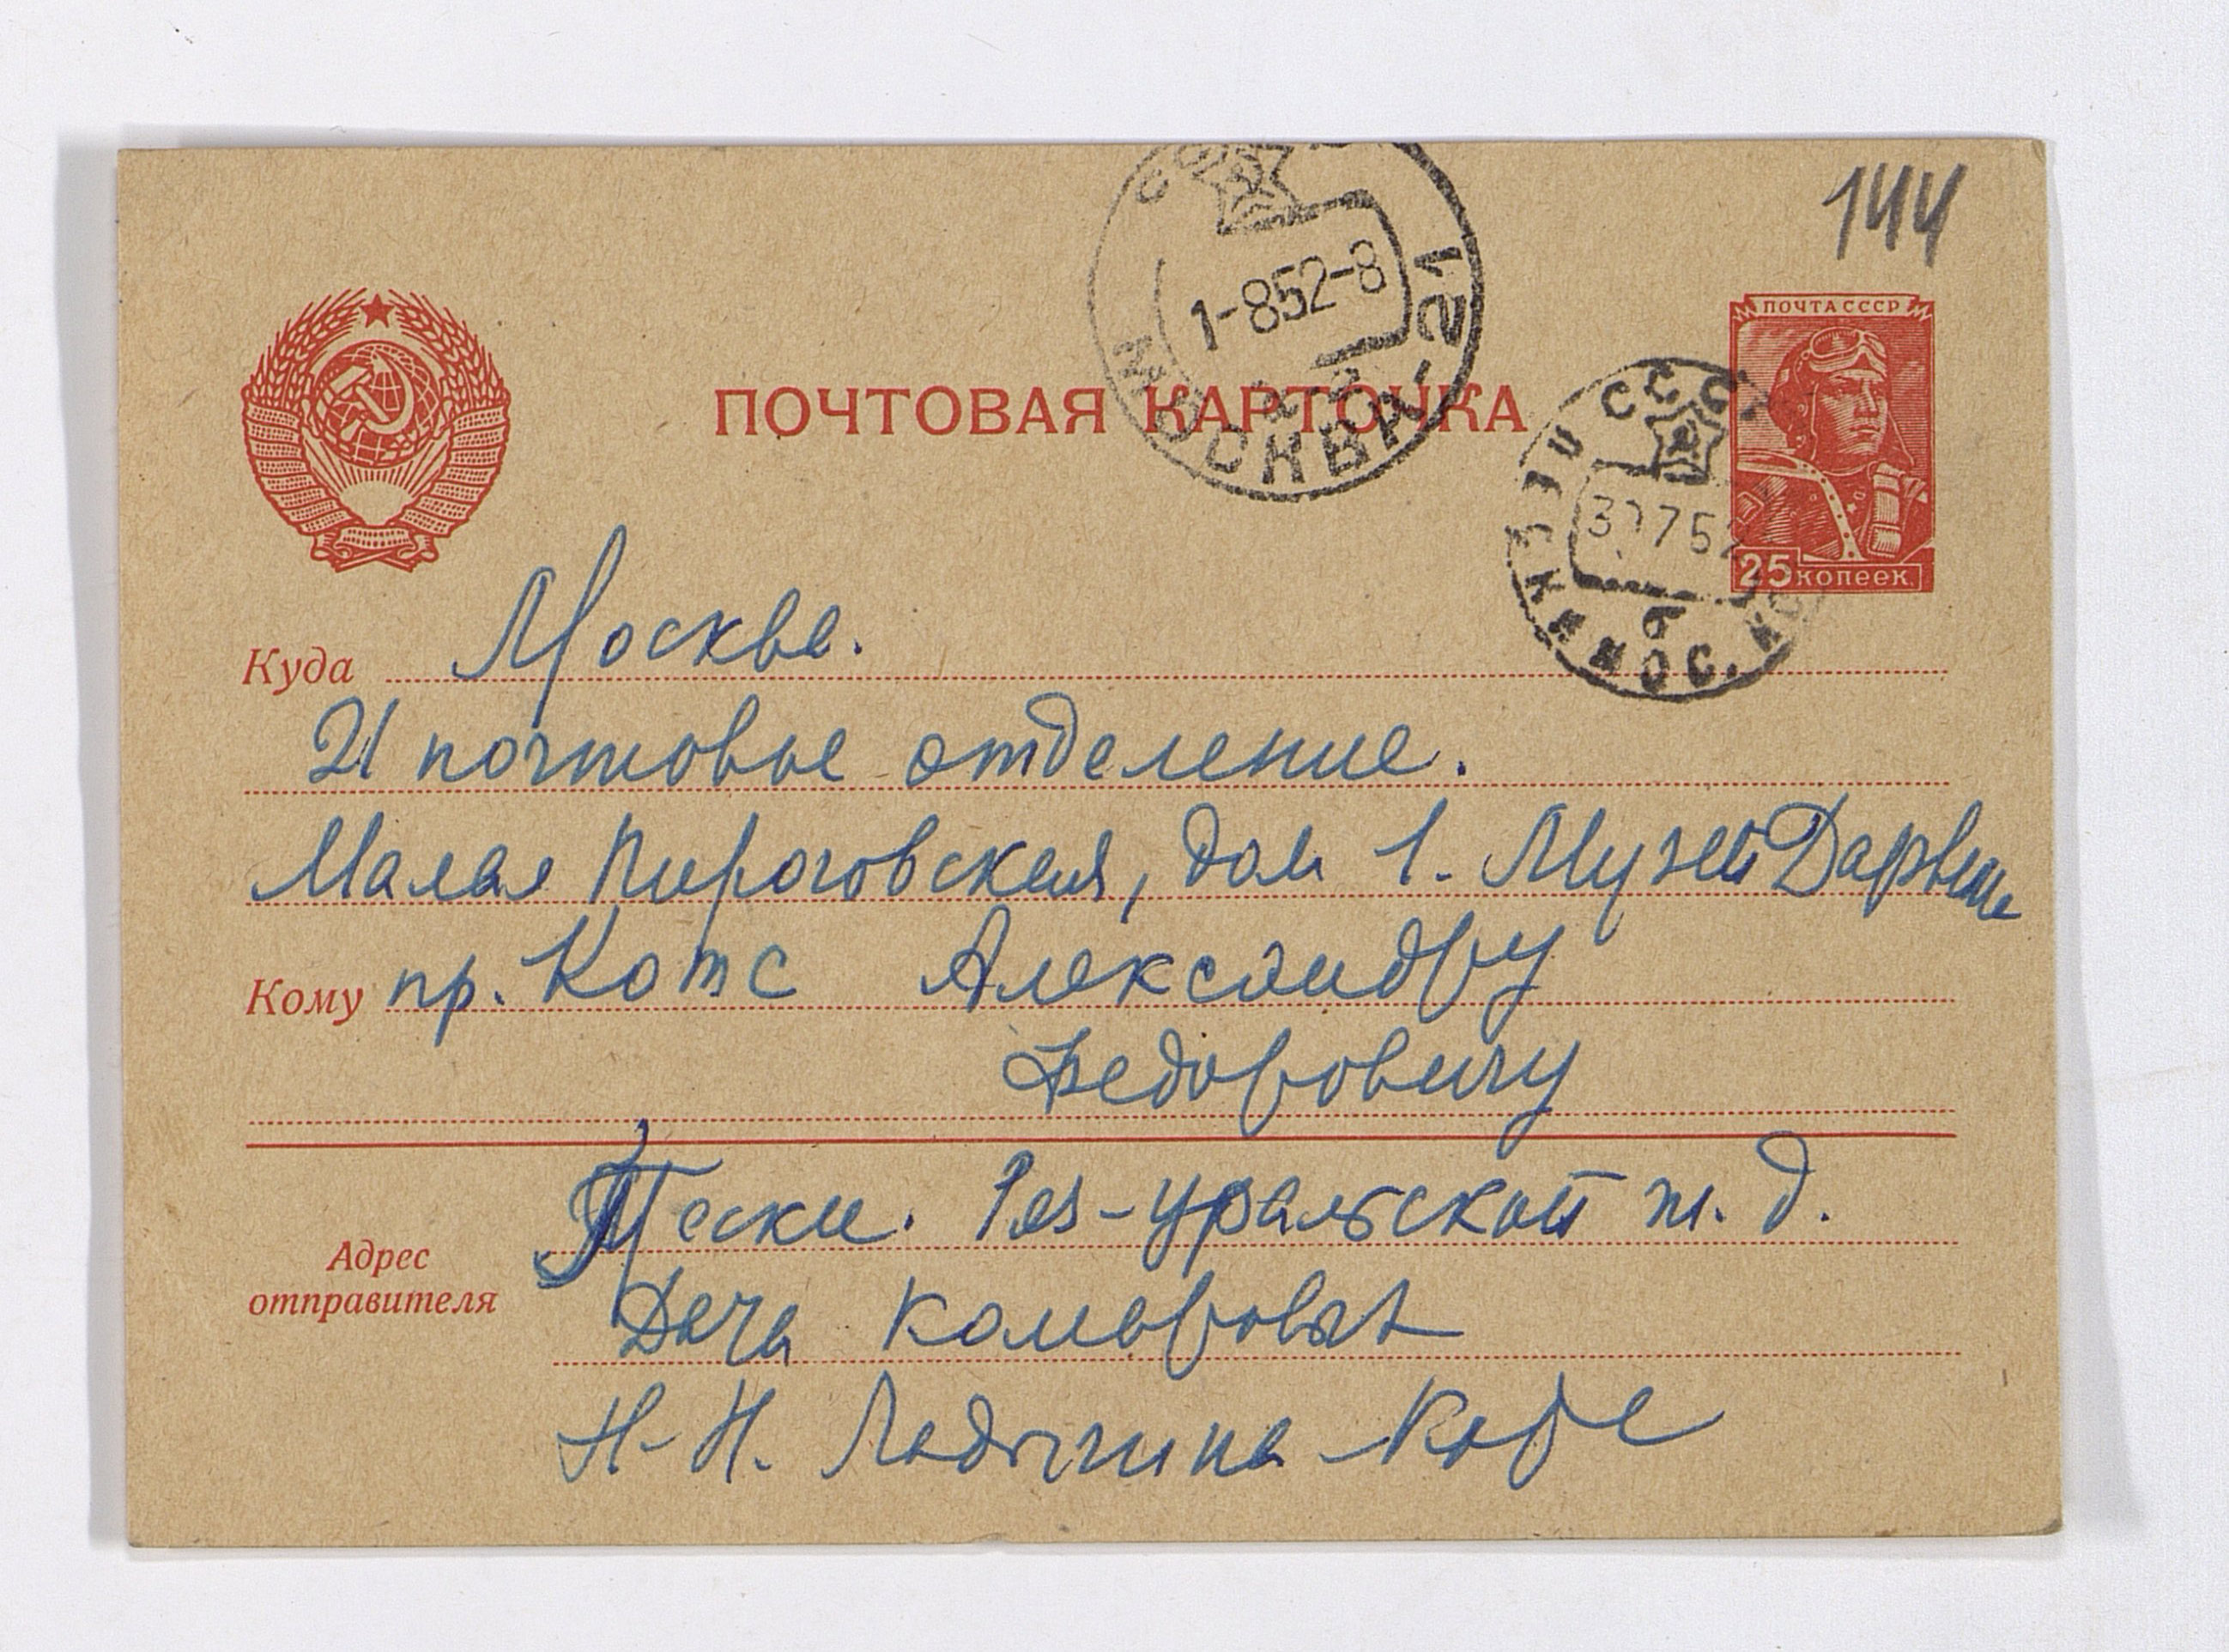 144
ПОЧТА СССР
25 копеек
СССР
1-852-8
МОСКВА-21
ПОЧТОВАЯ КАРТОЧКА
СССР
752
б
МОС.
Куда Москва.
21 почтовое отделение.
Малая Пироговская, дом 1. Музей Дарвина
Кому пр. Котс Александру
Федоровичу
Адрес
отправителя
Пески. Ряз-уральской ж. д.
Дача Комаровых
Н. Н. Ладыгина-Котс